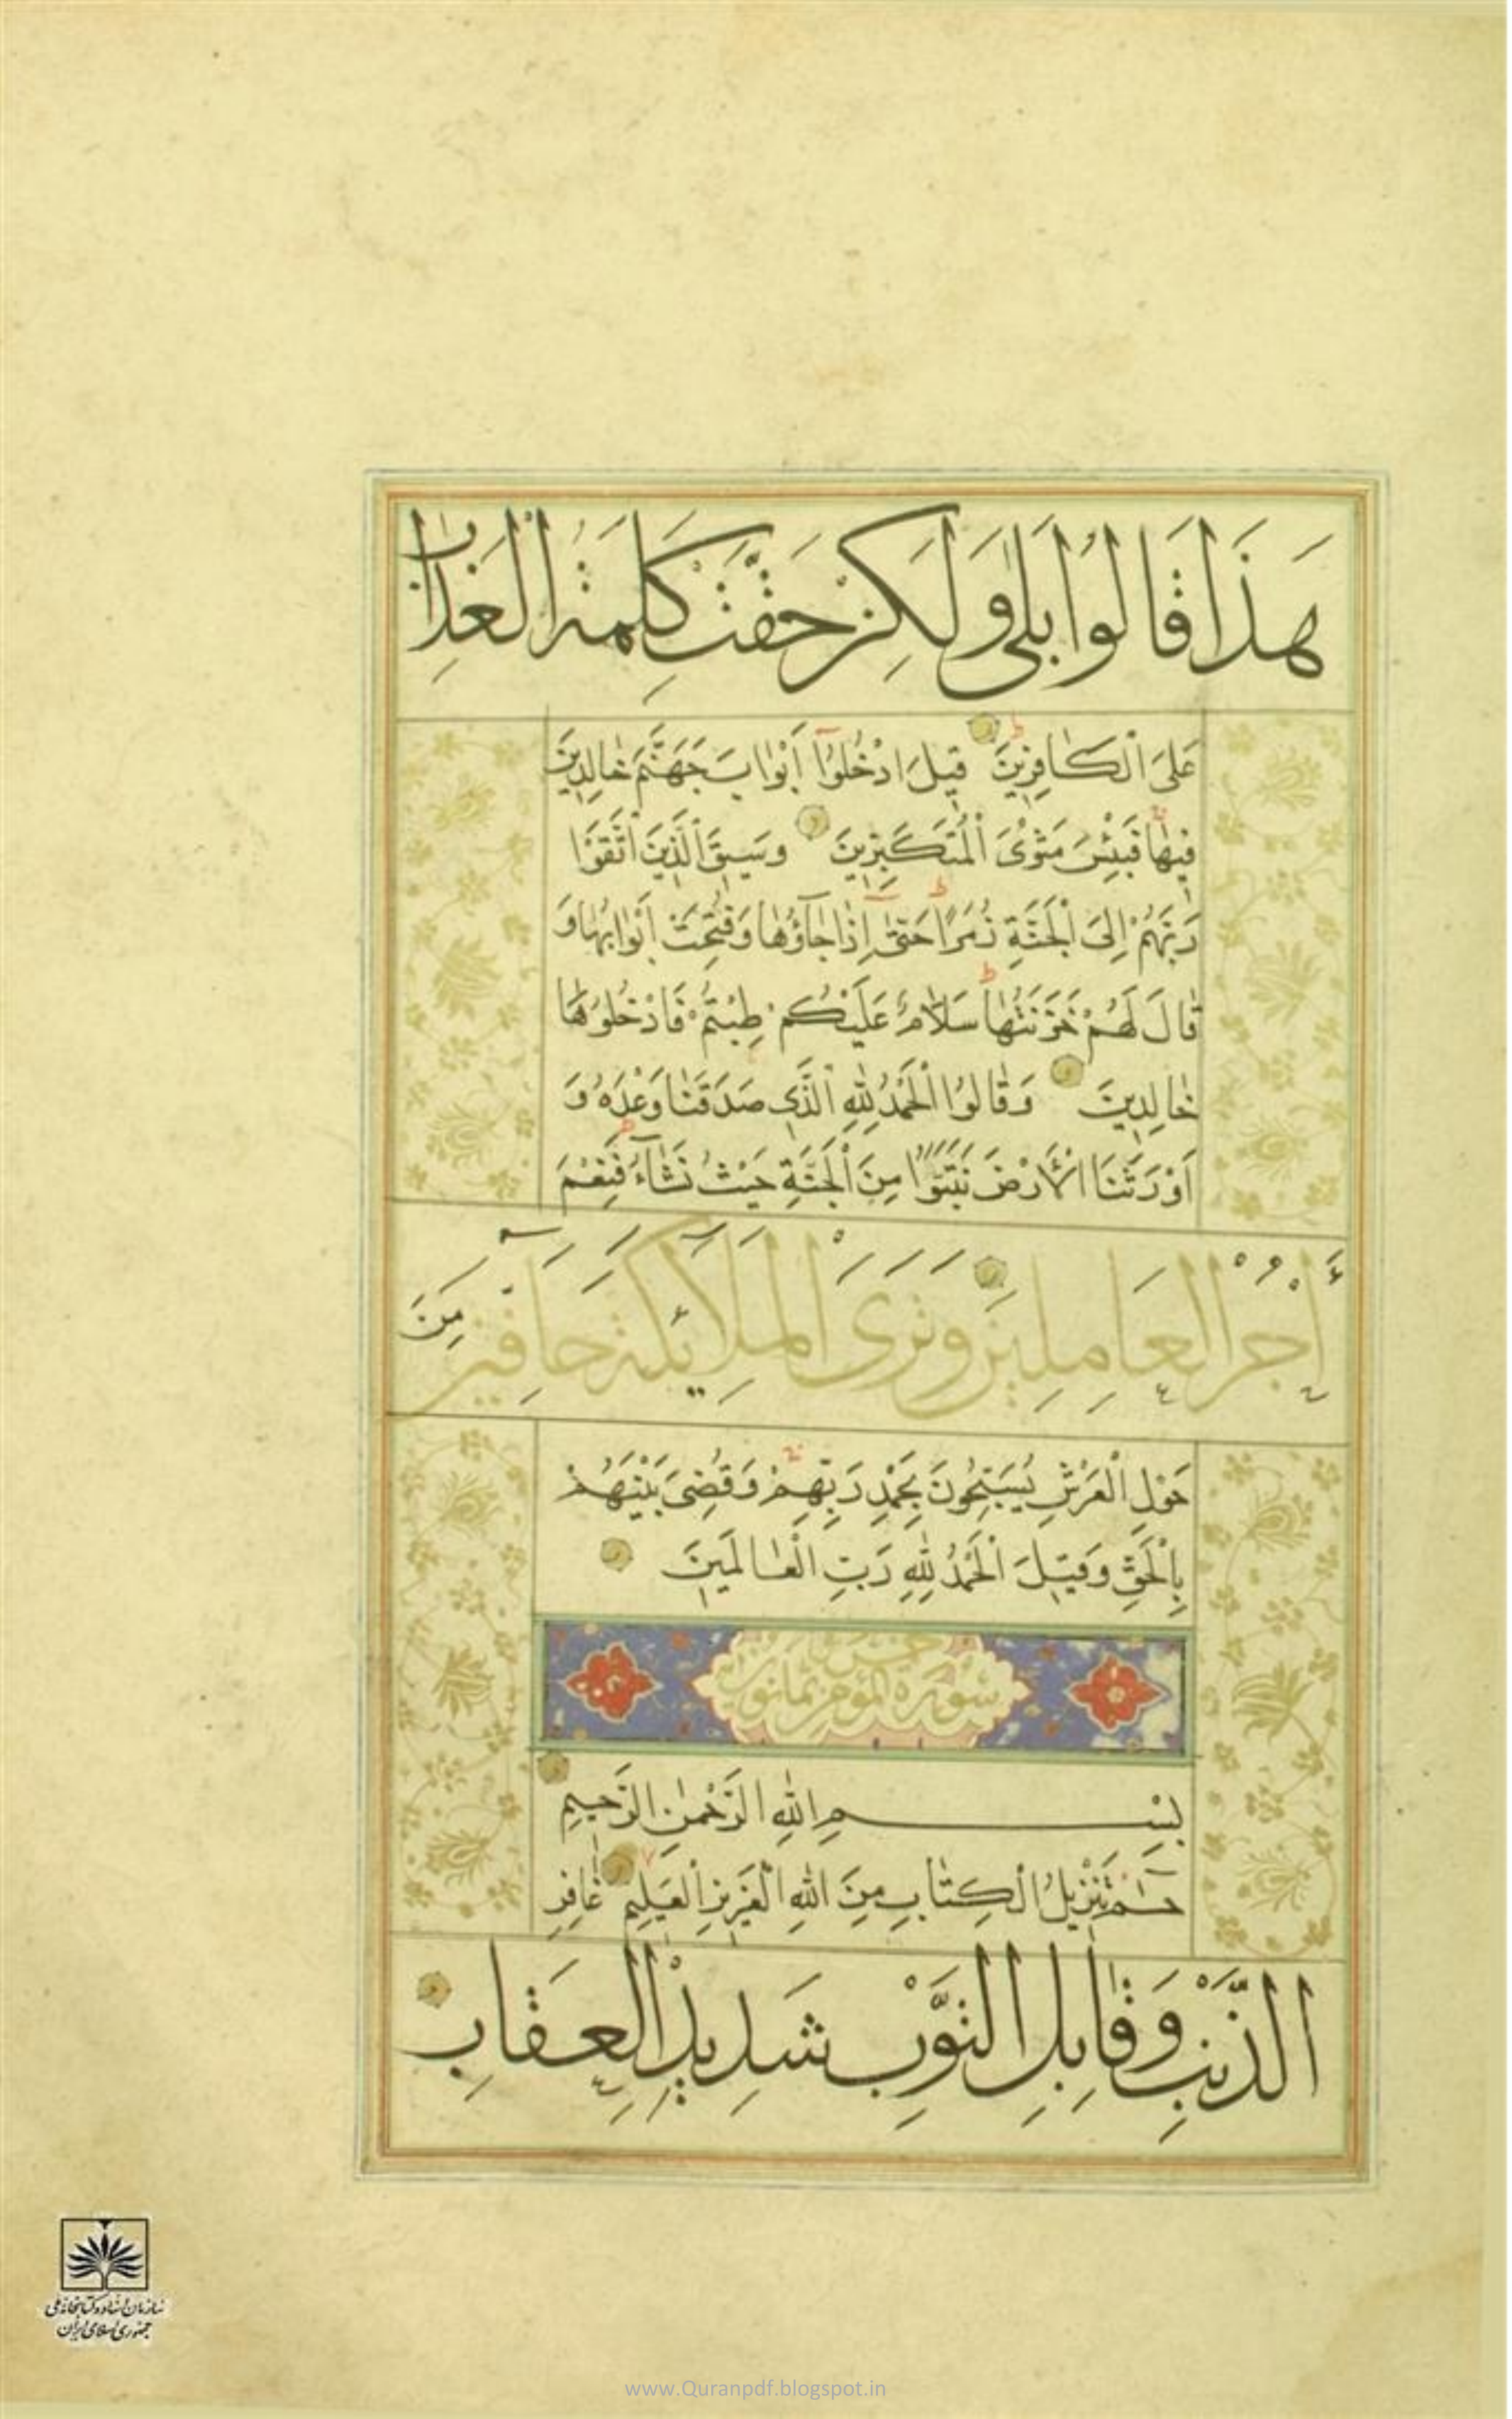 هَذَا قَالُوا بَلَىٰ وَلَكِنْ حَقَّتْ كَلِمَةُ الْعَذَابِ
عَلَى الْكَافِرِينَ قِيلَ ادْخُلُوا أَبْوَابَ جَهَنَّمَ خَالِدِينَ
فِيهَا فَبِئْسَ مَثْوَى الْمُتَكَبِّرِينَ وَسِيقَ الَّذِينَ اتَّقَوْا
رَبَّهُمْ إِلَى الْجَنَّةِ زُمَرًا حَتَّىٰ إِذَا جَاؤُهَا وَفُتِحَتْ أَبْوَابُهَا وَ
قَالَ لَهُمْ خَزَنَتُهَا سَلَامٌ عَلَيْكُمْ طِبْتُمْ فَادْخُلُوهَا
خَالِدِينَ وَقَالُوا الْحَمْدُ لِلَّهِ الَّذِي صَدَقَنَا وَعْدَهُ وَ
أَوْرَثَنَا الْأَرْضَ نَتَبَوَّأُ مِنَ الْجَنَّةِ حَيْثُ نَشَاءُ فَنِعْمَ
أَجْرُ الْعَامِلِينَ وَتَرَى الْمَلَائِكَةَ حَافِّينَ مِنْ
حَوْلِ الْعَرْشِ يُسَبِّحُونَ بِحَمْدِ رَبِّهِمْ وَقُضِيَ بَيْنَهُمْ
بِالْحَقِّ وَقِيلَ الْحَمْدُ لِلَّهِ رَبِّ الْعَالَمِينَ
سورة المؤمن ثمانون
بِسْمِ اللَّهِ الرَّحْمَٰنِ الرَّحِيمِ
حم تَنْزِيلُ الْكِتَابِ مِنَ اللَّهِ الْعَزِيزِ الْعَلِيمِ غَافِرِ
الذَّنْبِ وَقَابِلِ التَّوْبِ شَدِيدِ الْعِقَابِ
سازمان اسناد و کتابخانه ملی
جمهوری اسلامی ایران
www.Quranpdf.blogspot.in